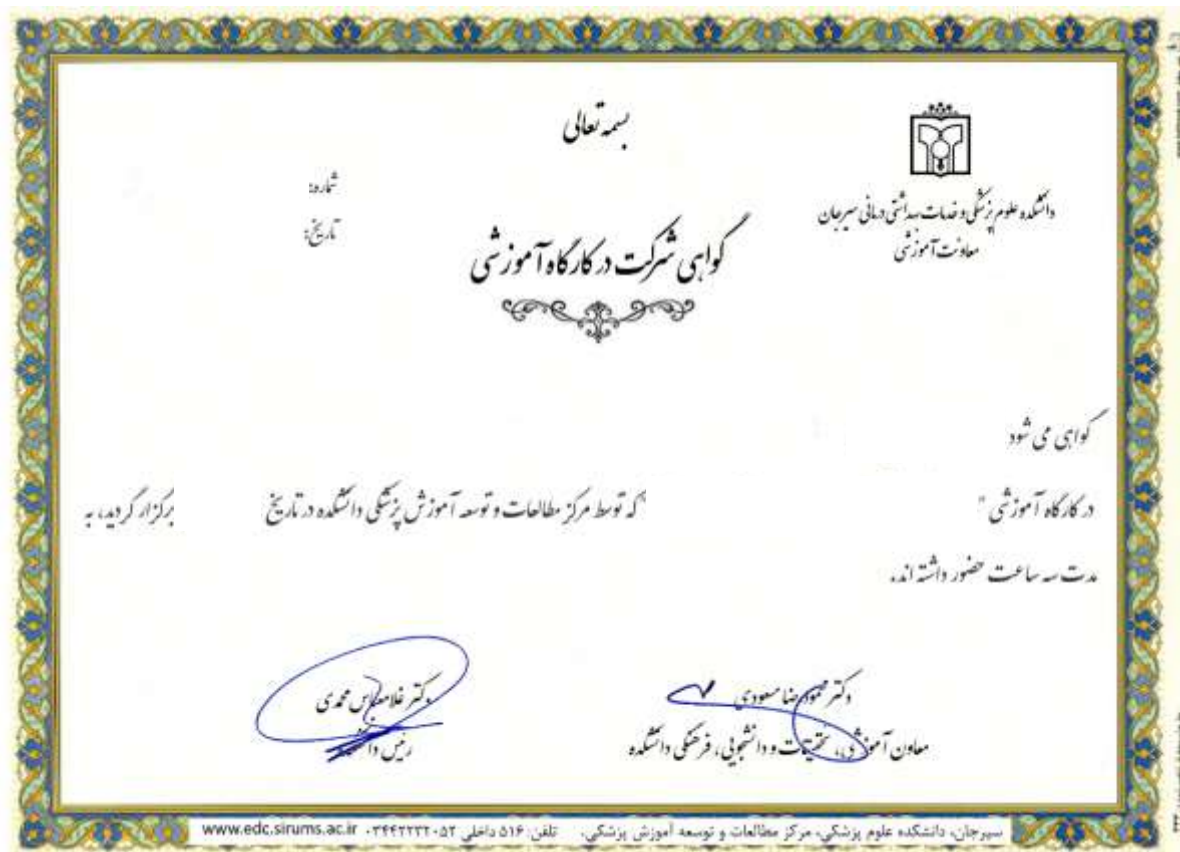 بسمه تعالی
دانشکده علوم پزشکی و خدمات بهداشتی درمانی سیرجان
معاونت آموزشی
شماره:
تاریخ:
گواهی شرکت در کارگاه آموزشی
گواهی می شود
در کارگاه آموزشی " "که توسط مرکز مطالعات و توسعه آموزش پزشکی دانشکده در تاریخ برگزار گردید، به
مدت سه ساعت حضور داشته اند.
دکتر محمودرضا مسعودی
معاون آموزشی، تحقیقات و دانشجویی، فرهنگی دانشکده
دکتر غلامعباس محمدی
رئیس دانشکده
سیرجان، دانشکده علوم پزشکی، مرکز مطالعات و توسعه آموزش پزشکی. تلفن: ۵۱۶ داخلی www.edc.sirums.ac.ir